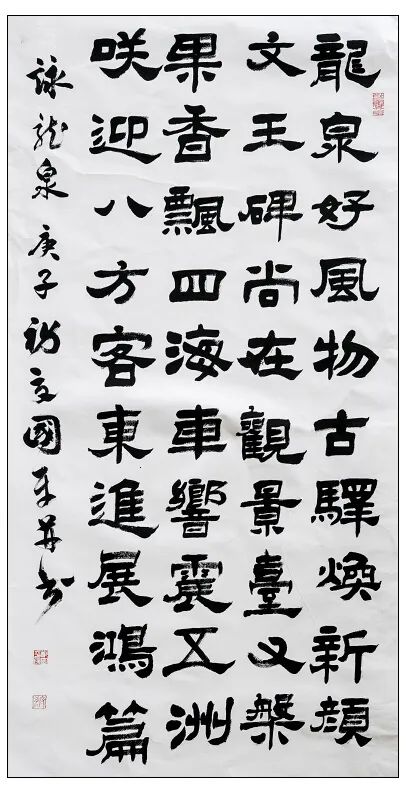 龍泉好風物古驛煥新顏
文王碑尚在觀景臺又槃
果香飄四海車響震五洲
咲迎八方客東進展鴻篇
詠龍泉 庚子初夏國平并书